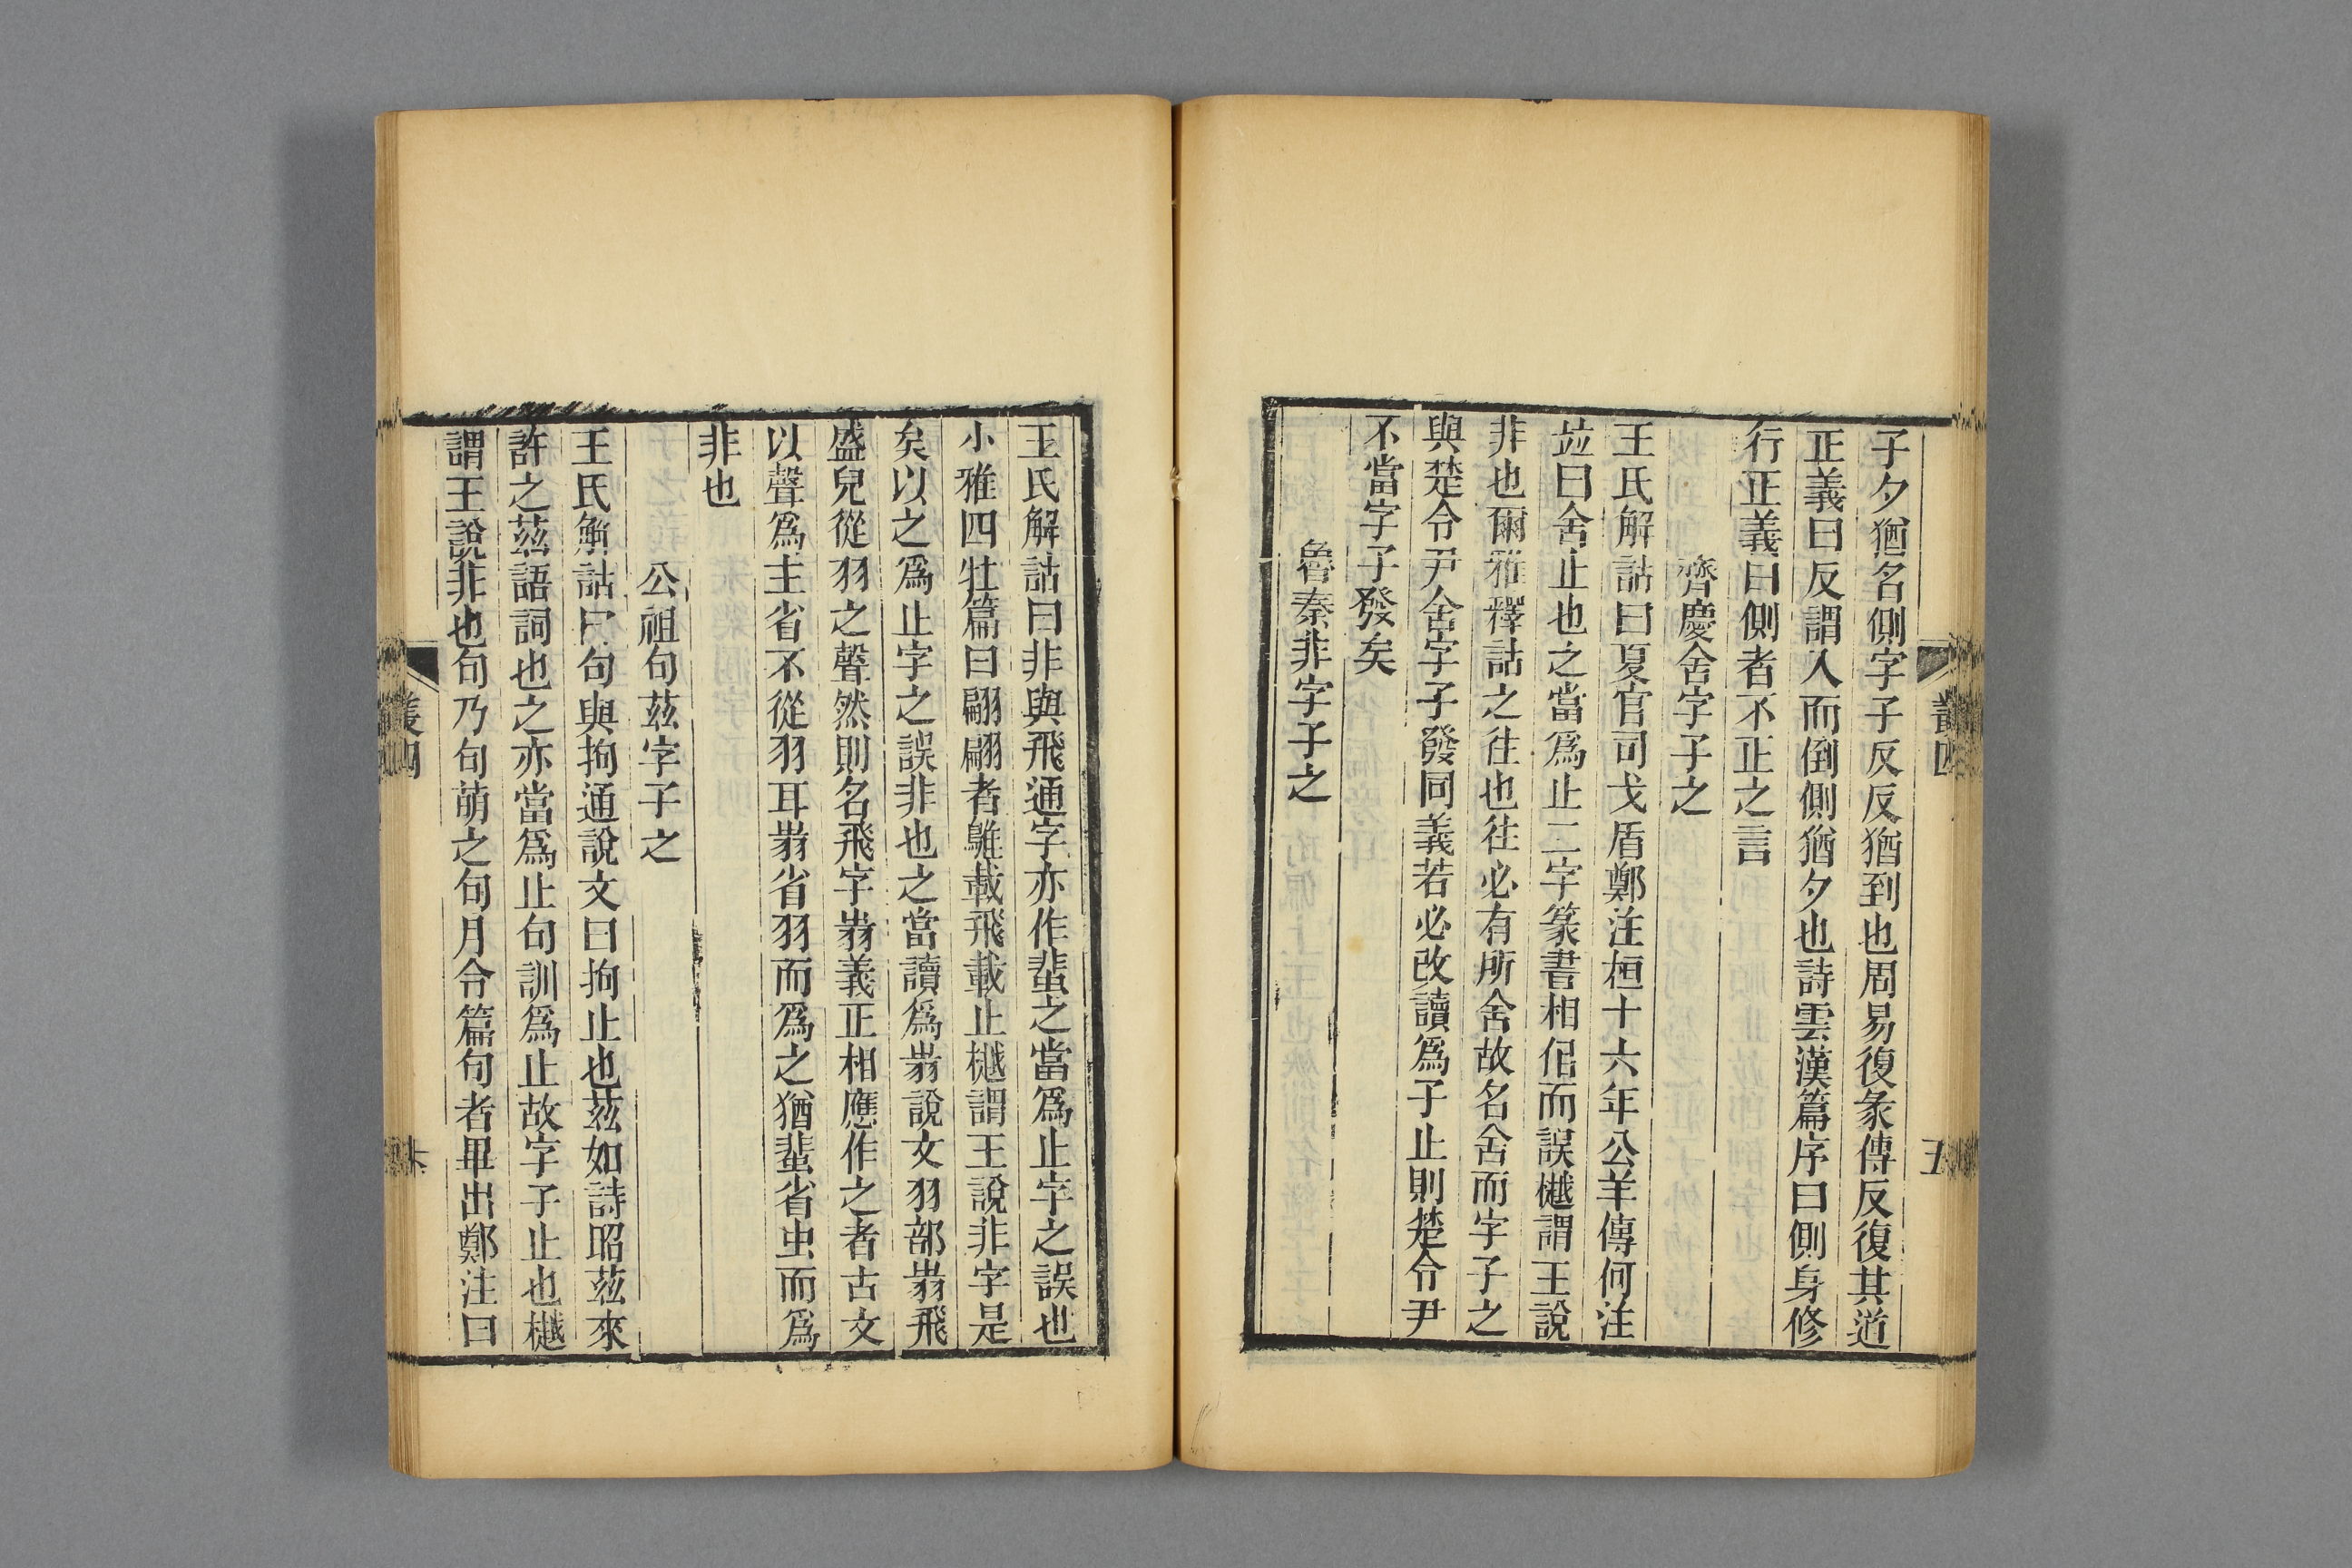 子夕猶名側字子反反猶到也周易復彖傳反復其道
正義曰反謂入而倒側猶夕也詩雲漢篇序曰側身修
行正義曰側者不正之言
齊慶舍字子之
王氏解詁曰夏官司戈盾鄭注桓十六年公羊傳何注
竝曰舍止也之當爲止二字篆書相佀而誤樾謂王說
非也爾雅釋詁之往也往必有所舍故名舍而字子之
與楚令尹舍字子發同義若必改讀爲子止則楚令尹
不當字子發矣
魯秦非字子之
王氏解詁曰非與飛通字亦作蜚之當爲止字之誤也
小雅四牡篇曰翩翩者鵻載飛載止樾謂王說非字是
矣以之爲止字之誤非也之當讀爲㞢說文羽部㞢飛
盛皃從羽之聲然則名飛字㞢義正相應作之者古文
以聲爲主省不從羽耳㞢省羽而爲之猶蜚省虫而爲
非也
公祖句茲字子之
王氏解詁曰句與拘通說文曰拘止也茲如詩昭茲來
許之茲語詞也之亦當爲止句訓爲止故字子止也樾
謂王說非也句乃句萌之句月令篇句者畢出鄭注曰
叢四
五